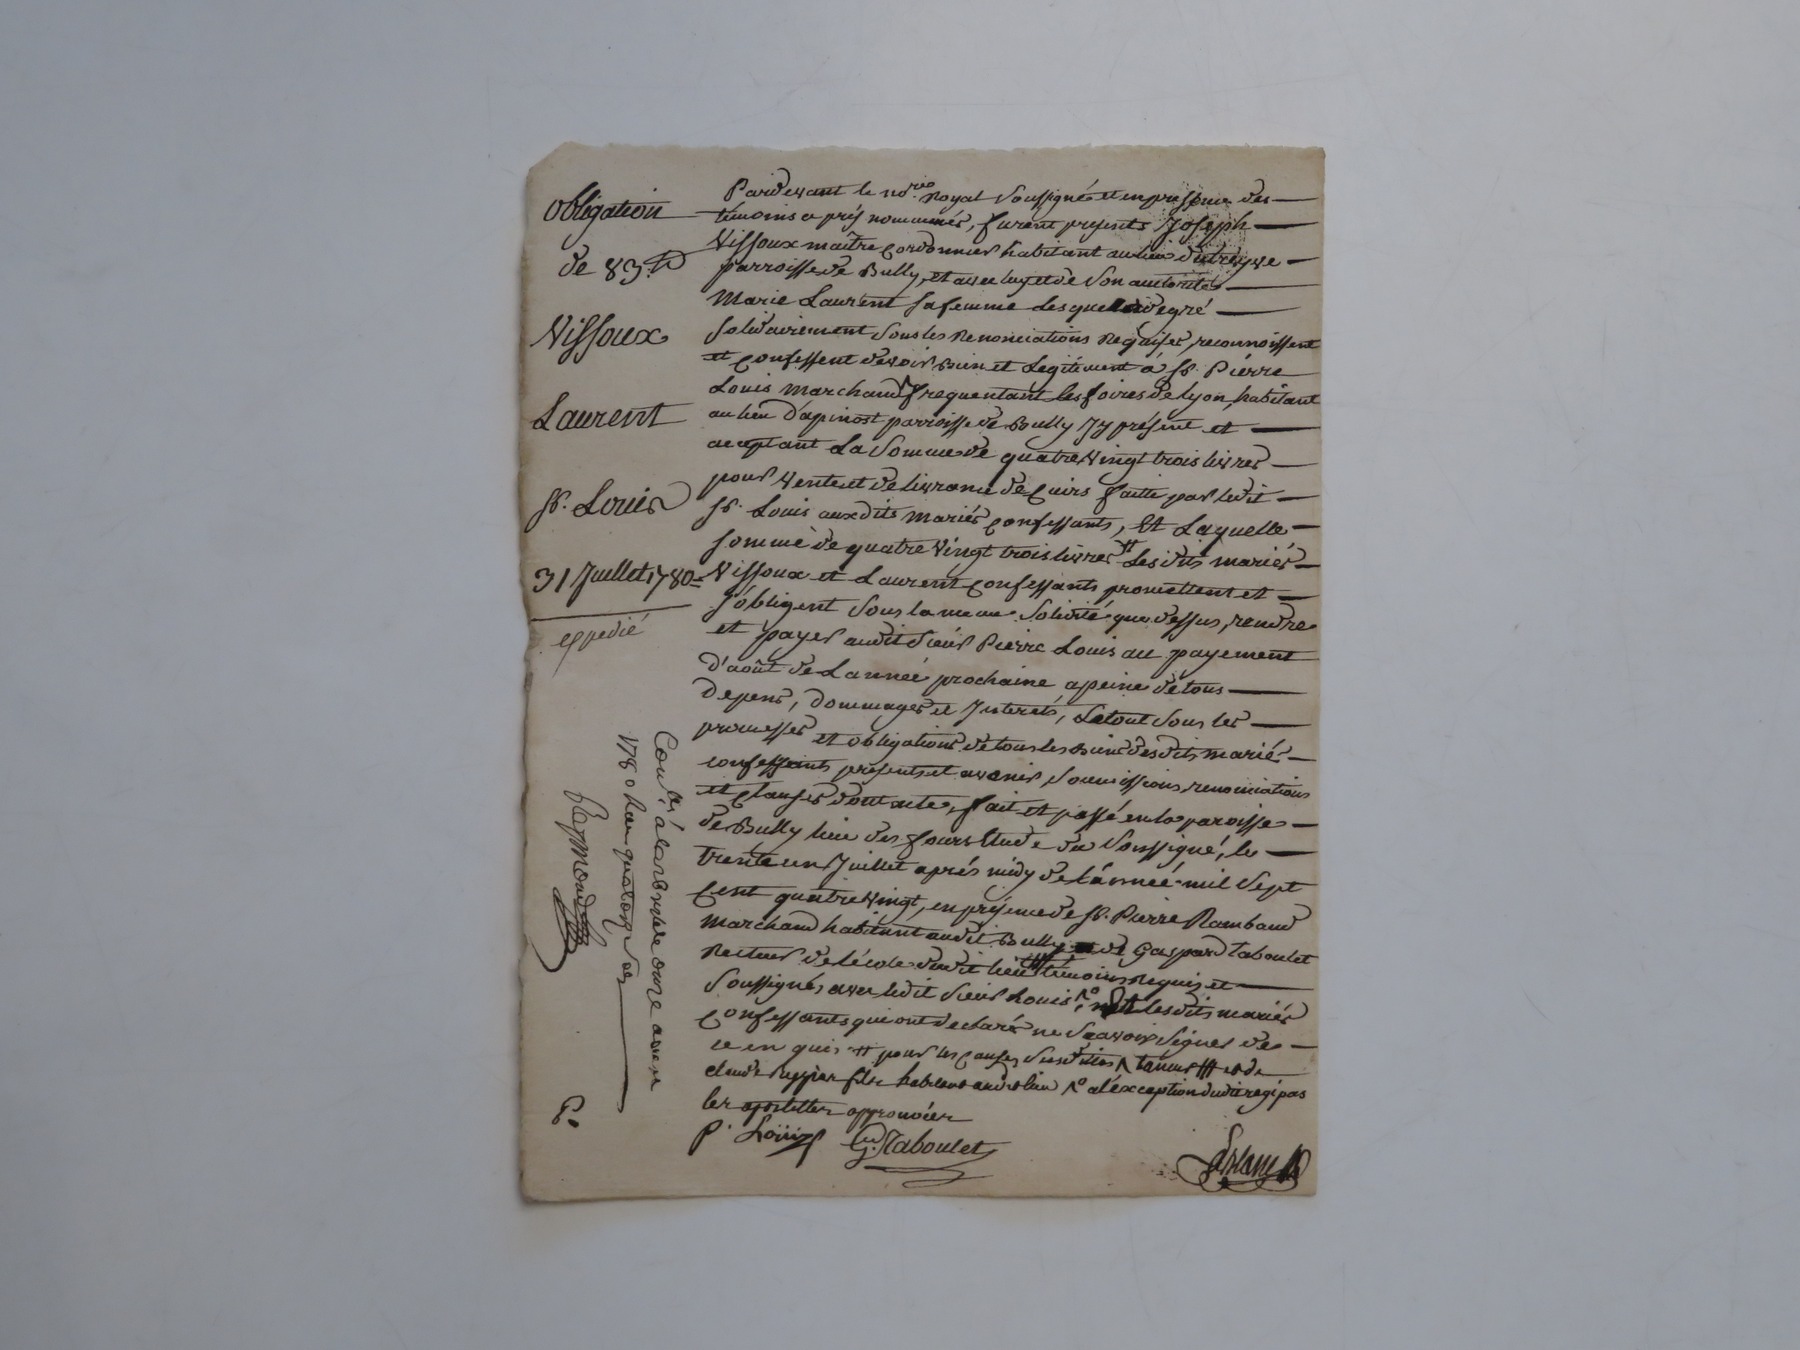 Obligation
de 83.ᵗᵗ
Vissoux
Laurent
Sr. Louis
31 Juillet 1780=
expedié
Pardevant le nore. Royal Soussigné et en presence des
témoins aprés nommés, furent presents Joseph
Vissoux maitre Cordonnier habitant au lieu
parroisse de Bully, et avec luy et de Son autorité
Marie Laurent sa femme Lesquels de gré
solidairement Sous les Renonciations Requises, reconnoissent
et Confessent devoir bien et Legitimement á Sr. Piérre
Louis marchand frequentant les foires de Lyon, habitant
au lieu d'apinost parroisse de Bully Jy présent et
acceptant La Somme de quatre Vingt trois livres
pour Vente et delivrance de Cuirs faitte par ledit
Sr. Louis aux dits mariés Confessants, Et Laquelle
somme de quatre Vingt trois livres # Lesdits mariés
Vissoux et Laurent Confessants promettent et
s'obligent Sous la meme Solidité que dessus, rendre
et payer audit Sieur Pierre Louis au payement
d'août de L'année prochaine a peine de tous
Depens, Dommages et Interets, Le tout Sous les
promesses et obligations de tous les biens desdits mariés
confessants présents et avenir, Soumissions, renonciations
et Clauses dont acte, fait et passé en la paroisse
de Bully lieu des fours Etude du Soussigné, le
trente un Juillet aprés midy de l'année mil Sept
Cent quatre Vingt, en présence de Sr. Pierre Rambaud
marchand habitant audit Bully de Gaspard Taboulet
Recteur de l'école dudit lieu témoins Requis et
Soussignés avec ledit Sieur Louis les dits mariés
Confessants qui ont declarés ne Scavoir Signer de
ce en quis # pour les Causes Susdittes et de
claude fils habitant audit lieu à l'exception dudit
les apostilles approuvées
P. Loüis G. Taboulet
Conlé. á larbresle le onze aoust
1780 Reçu quatorze
Raymond